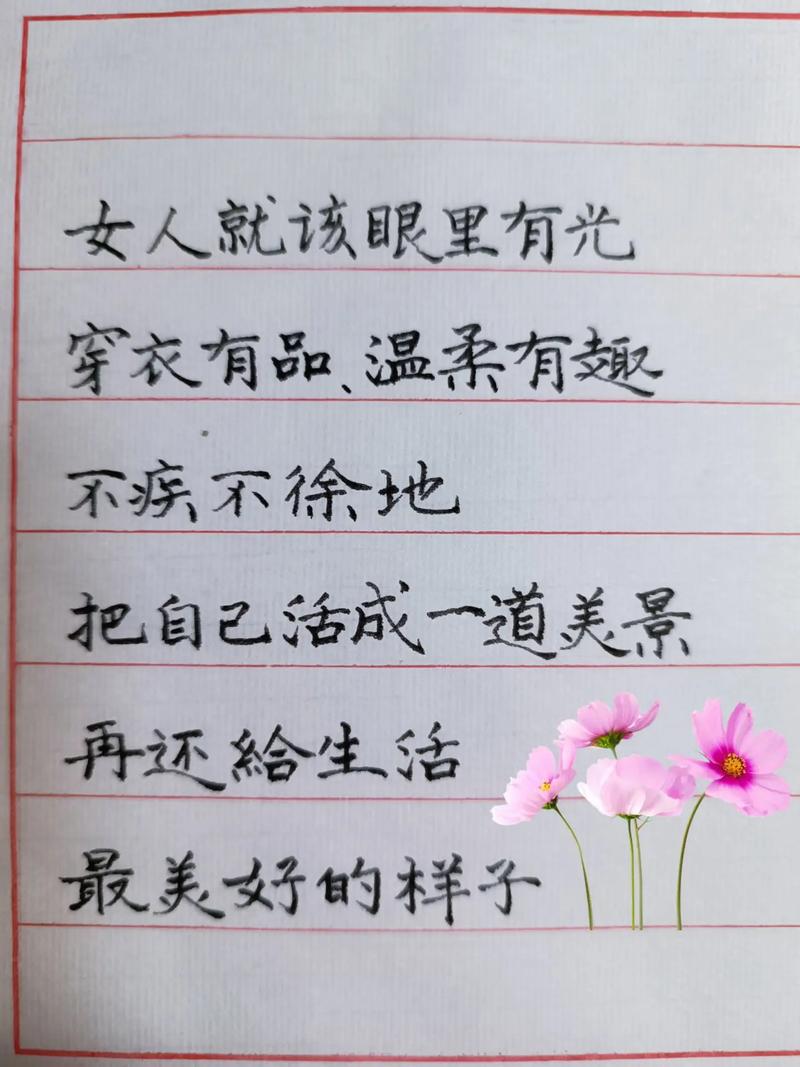 女人就该眼里有光
穿衣有品、温柔有趣
不疾不徐地
把自己活成一道美景
再还給生活
最美好的样子